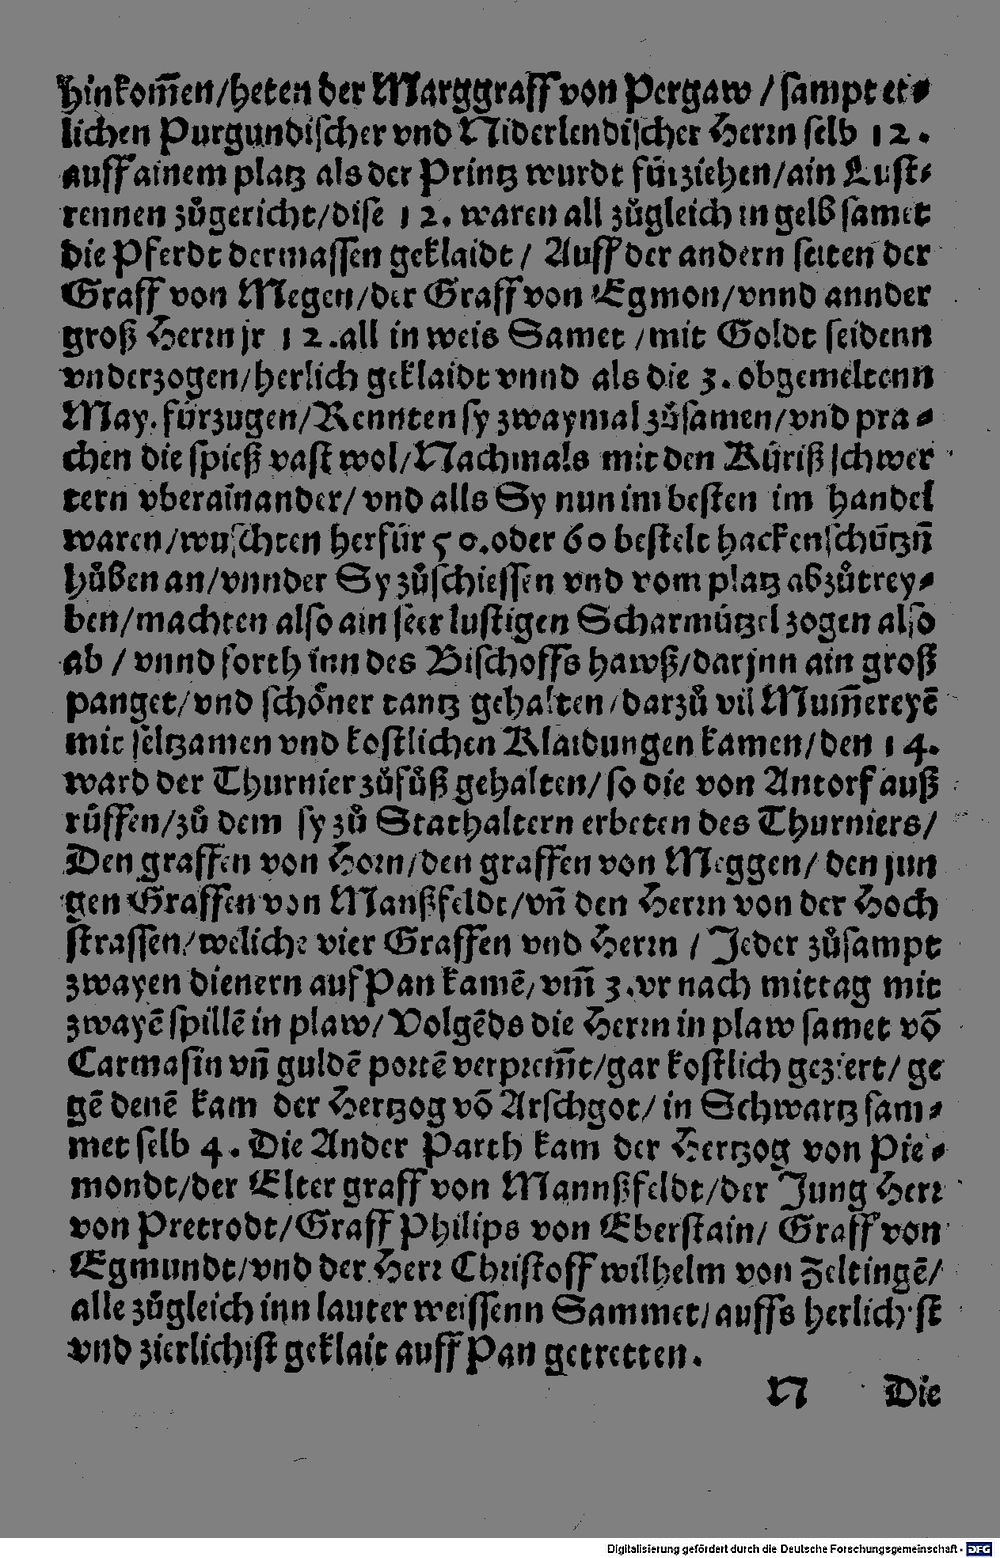 hinkom̃en/heten der Marggraff von Pergaw / sampt et⸗
lichen Purgundischer vnd Niderlendischer Herrn selb 12.
auff ainem platz als der Printz wurdt fürziehen/ain Lust⸗
rennen zůgericht/dise 12. waren all zůgleich in gelb samet
die Pferdt dermassen geklaidt / Auff der andern seiten der
Graff von Megen/der Graff von Egmon/vnnd annder
groß Herrn jr 12.all in weis Samet /mit Goldt seidenn
vnderzogen/herlich geklaidt vnnd als die 3. obgemeltenn
May. fürzugen/Rennten sy zwaymal zůsamen/vnd pra⸗
chen die spieß vast wol/Nachmals mit den Küriß schwer
tern vberainander/ vnd alls Sy nun im besten im handel
waren/wuschten herfür 50.oder 60 bestelt hackenschützñ
hůben an/vnnder Sy zůschiessen vnd vom platz abzůtrey⸗
ben/machten also ain seer lustigen Scharmützel zogen also
ab / vnnd forth inn des Bischoffs hawß/darjnn ain groß
panget/vnd schöner tantz gehalten/darzů vil Mum̃ereyẽ
mit seltzamen vnd kostlichen Klaidungen kamen/den 14.
ward der Thurnier zůfůß gehalten/so die von Antorf auß
rüffen/zů dem sy zů Stathaltern erbeten des Thurniers/
Den graffen von Horn/den graffen von Meggen/ den jun
gen Graffen von Manßfeldt/vñ den Herrn von der Hoch
strassen/weliche vier Graffen vnd Herrn / Jeder zůsampt
zwayen dienern auf Pan kamẽ/vm̃ 3.vr nach mittag mit
zwayẽ spillẽ in plaw/Volgẽds die Herrn in plaw samet võ
Carmasin vñ guldẽ portẽ verprem̃t/gar kostlich geziert/ ge
gẽ denẽ kam der Hertzog võ Arschgot/ in Schwartz sam⸗
met selb 4. Die Ander Parth kam der Hertzog von Pie⸗
mondt/der Elter graff von Mannßfeldt/der Jung Herr
von Pretrodt/Graff Philips von Eberstain/ Graff von
Egmundt/vnd der Herr Christoff wilhelm von Zeltingẽ/
alle zůgleich inn lauter weissenn Sammet/auffs herlichist
vnd zierlichist geklait auff Pan getretten.
N Die
Digitalisierung gefördert durch die Deutsche Forschungsgemeinschaft - DFG